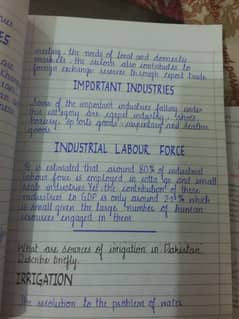 meeting the needs of local and domestic
markets. the sectors also contributes to
foreign exchange sources through export trade.
IMPORTANT INDUSTRIES
Some of the important industries falling under
this category are carpet industry, knives,
hosiery, Sports goods, carpentry and leather
goods.
INDUSTRIAL LABOUR FORCE
It is estimated that around 80% of industrial
labour force is employed in cottage and small
scale industries. Yet the contribution of these
industries to GDP is only around which
is small given the large number of human
resources engaged in them
What are sources of irrigation in Pakistan.
Describe briefly.
IRRIGATION
The resolution to the problem of water